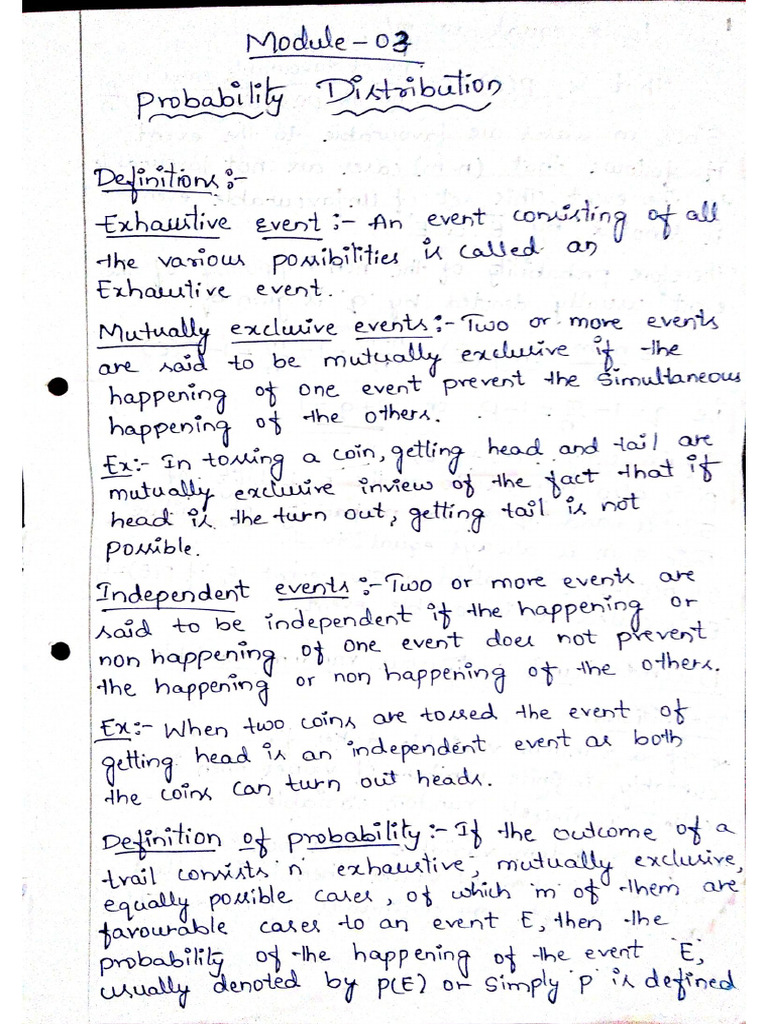 1
Module - 03
Probability Distribution
Definitions :-
Exhaustive event :- An event consisting of all
the various possibilities is called an
Exhaustive event.
Mutually exclusive events :- Two or more events
are said to be mutually exclusive if the
happening of one event prevent the Simultaneous
happening of the others.
Ex:- In tossing a coin, getting head and tail are
mutually exclusive inview of the fact that if
head is the turn out, getting tail is not
possible.
Independent events :- Two or more events are
said to be independent if the happening or
non happening of one event does not prevent
the happening or non happening of the others.
Ex:- When two coins are tossed the event of
getting head is an independent event as both
the coins can turn out heads.
Definition of probability :- If the outcome of a
trail consists 'n' exhaustive, mutually exclusive,
equally possible cases, of which 'm' of them are
favourable cases to an event E, then the
probability of the happening of the event 'E',
usually denoted by P(E) or simply 'p' is defined